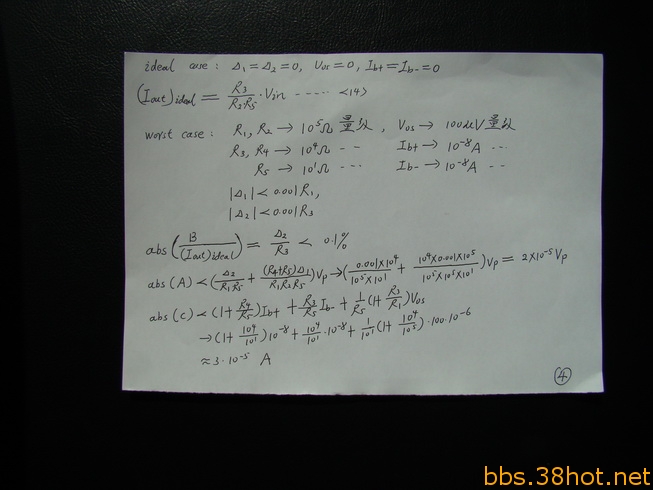 ideal case : Δ₁=Δ₂=0, Vos=0, Ib+=Ib-=0
(Iout)ideal = R3/(R2·R5) · Vin ----- <14>
worst case : R1, R2 → 10⁵Ω 量级 , Vos → 100uV 量级
R3, R4 → 10⁴Ω -- Ib+ → 10⁻⁸A --
R5 → 10¹Ω --- Ib- → 10⁻⁸A --
|Δ1| < 0.001R1,
|Δ2| < 0.001R3
abs(B/(Iout)ideal) = Δ2/R3 < 0.1%
abs(A) < (Δ2/(R1R5) + (R4+R5)Δ1/(R1R2R5))Vp → (0.001×10⁴/(10⁵×10¹) + 10⁴×0.001×10⁵/(10⁵×10⁵×10¹))Vp = 2×10⁻⁵Vp
abs(C) < (1+R4/R5)Ib+ + R3/R5 Ib- + 1/R5(1+R3/R1)Vos
→ (1+10⁴/10¹)10⁻⁸ + 10⁴/10¹·10⁻⁸ + 1/10¹(1+10⁴/10⁵)·100·10⁻⁶
≈ 3·10⁻⁵ A
④
bbs.38hot.net